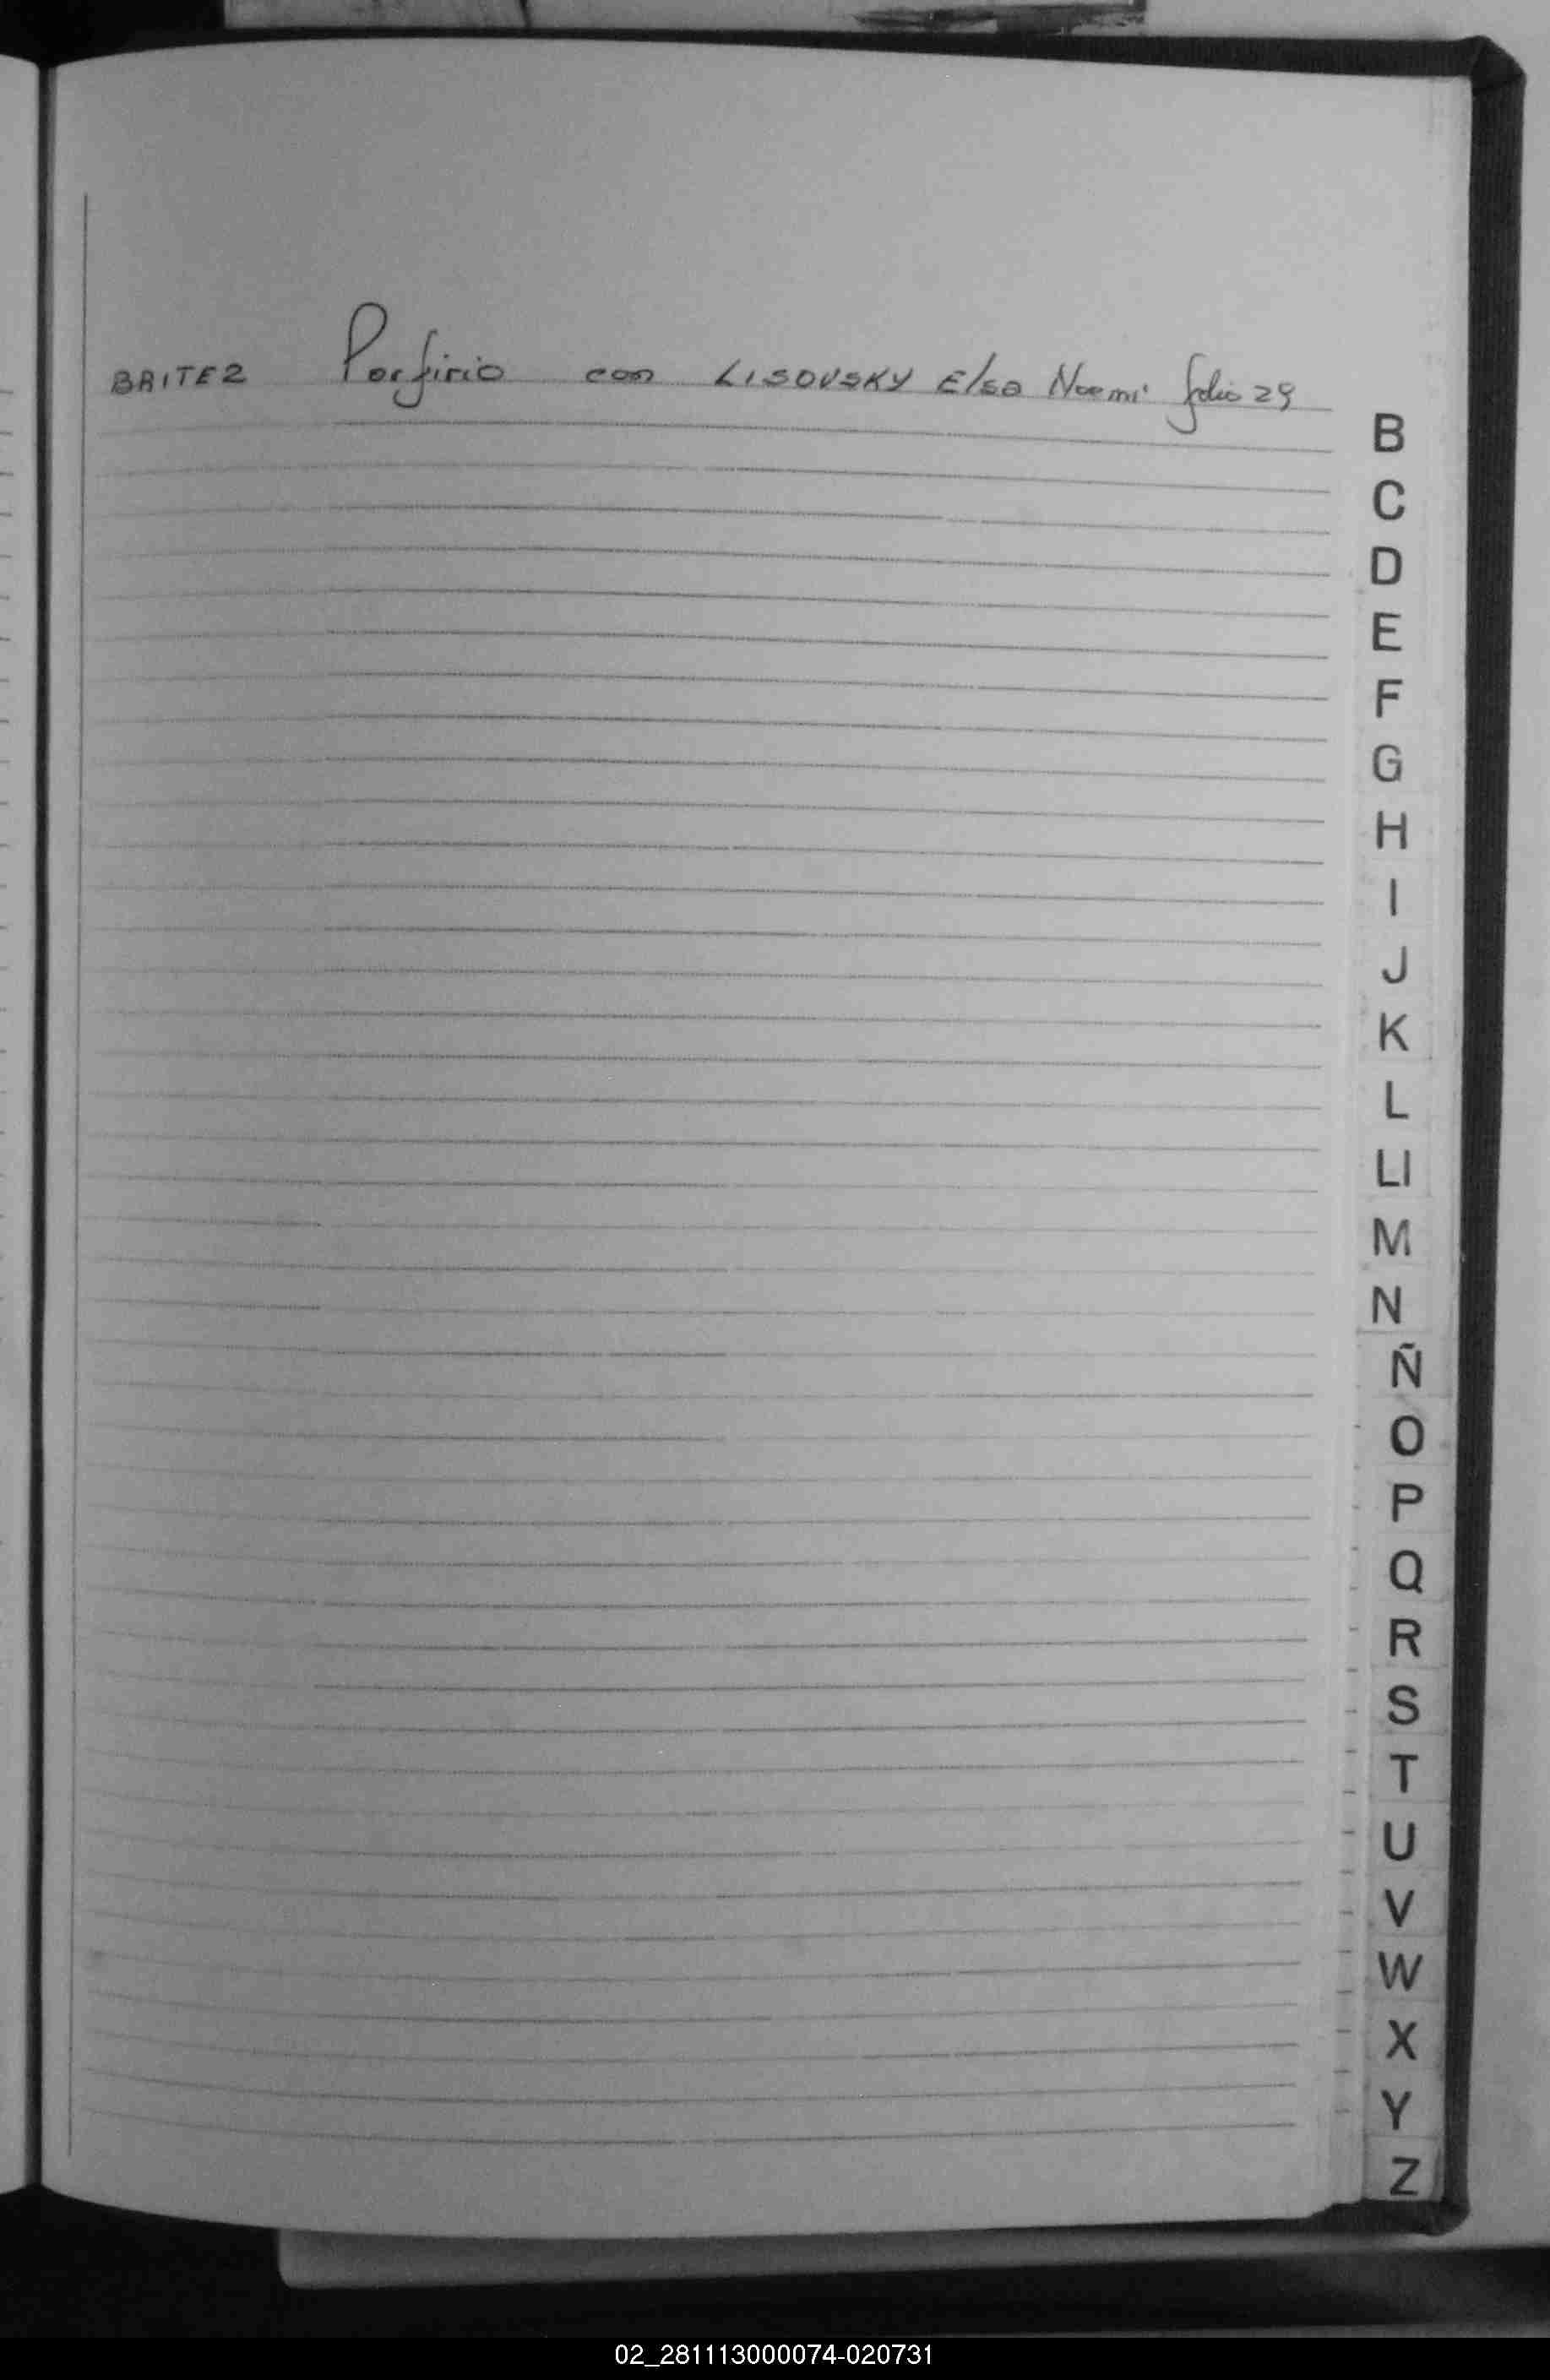 BRITEZ Porfirio con LISOVSKY Elsa Noemi folio 29
B
C
D
E
F
G
H
I
J
K
L
Ll
M
N
Ñ
O
P
Q
R
S
T
U
V
W
X
Y
Z
02_281113000074-020731